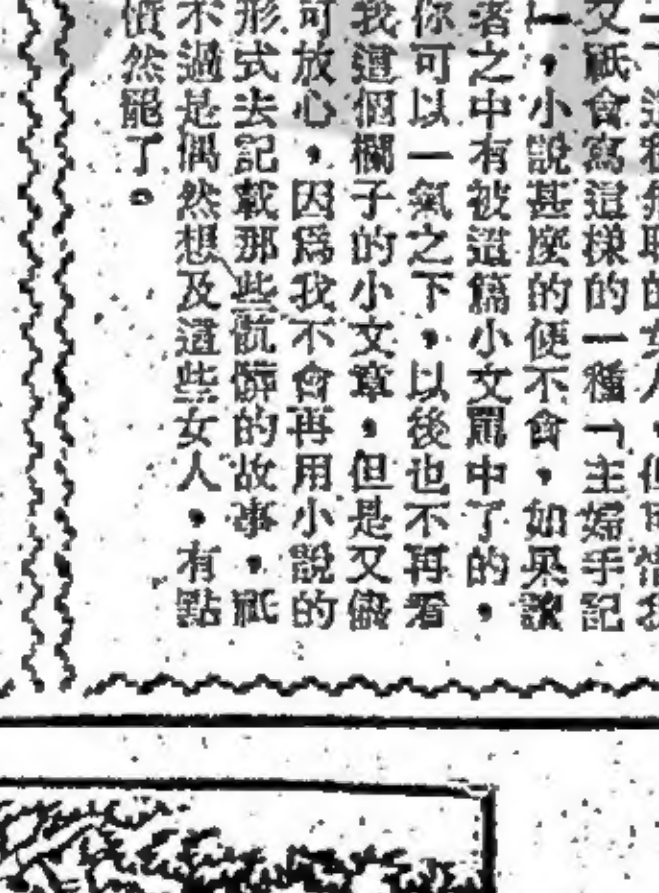 一下這種無耻的女人，但可惜我
又祇會寫這樣的一種「主婦手記
」，小說甚麼的便不會，如果讀
者之中有被這篇小文罵中了的，
你可以一氣之下，以後也不再看
我這個欄子的小文章，但是又儘
可放心，因爲我不會再用小說的
形式去記載那些骯髒的故事，祇
不過是偶然想及這些女人，有點
憤然罷了。